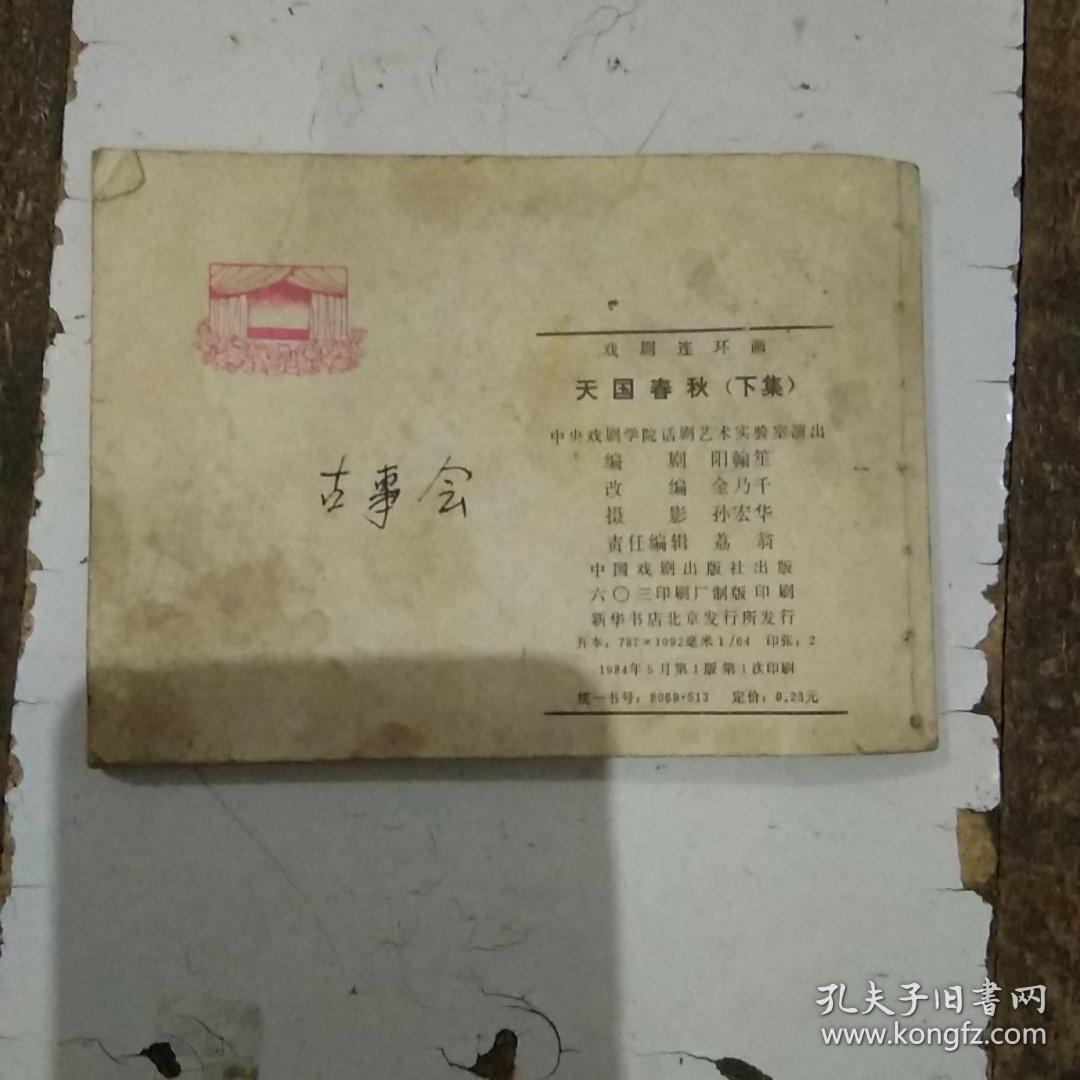 戏剧连环画
天国春秋（下集）
中央戏剧学院话剧艺术实验室演出
编 剧 阳翰笙
改 编 金乃千
摄 影 孙宏华
责任编辑 荔 翁
中国戏剧出版社出版
六〇三印刷厂制版印刷
新华书店北京发行所发行
开本：787×1092毫米1/64 印张：2
1984年5月第1版第1次印刷
统一书号：8069·513 定价：0.23元
古事会
孔夫子旧書网
www.kongfz.com